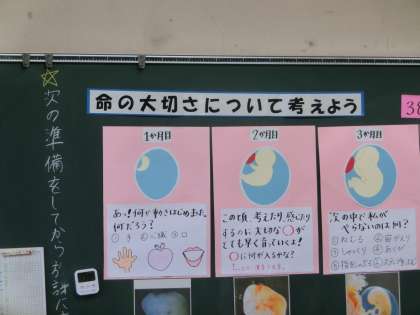 命の大切さについて考えよう
38
☆次の準備をしてからお計に
1か月目
あっ！何か動きはじめました。
何だろう？
① 手 ② 心臓 ③ 口
2か月目
この頃、考えたり、感じたり
するのに大切な〇が
とても早く育っていくよ！
〇に何が入るかな？
3か月目
次の中で私が
やらないのは何？
① ねむる
④ 宙がえり
② しゃっくり
⑤ あくび
③ 指をしゃぶる